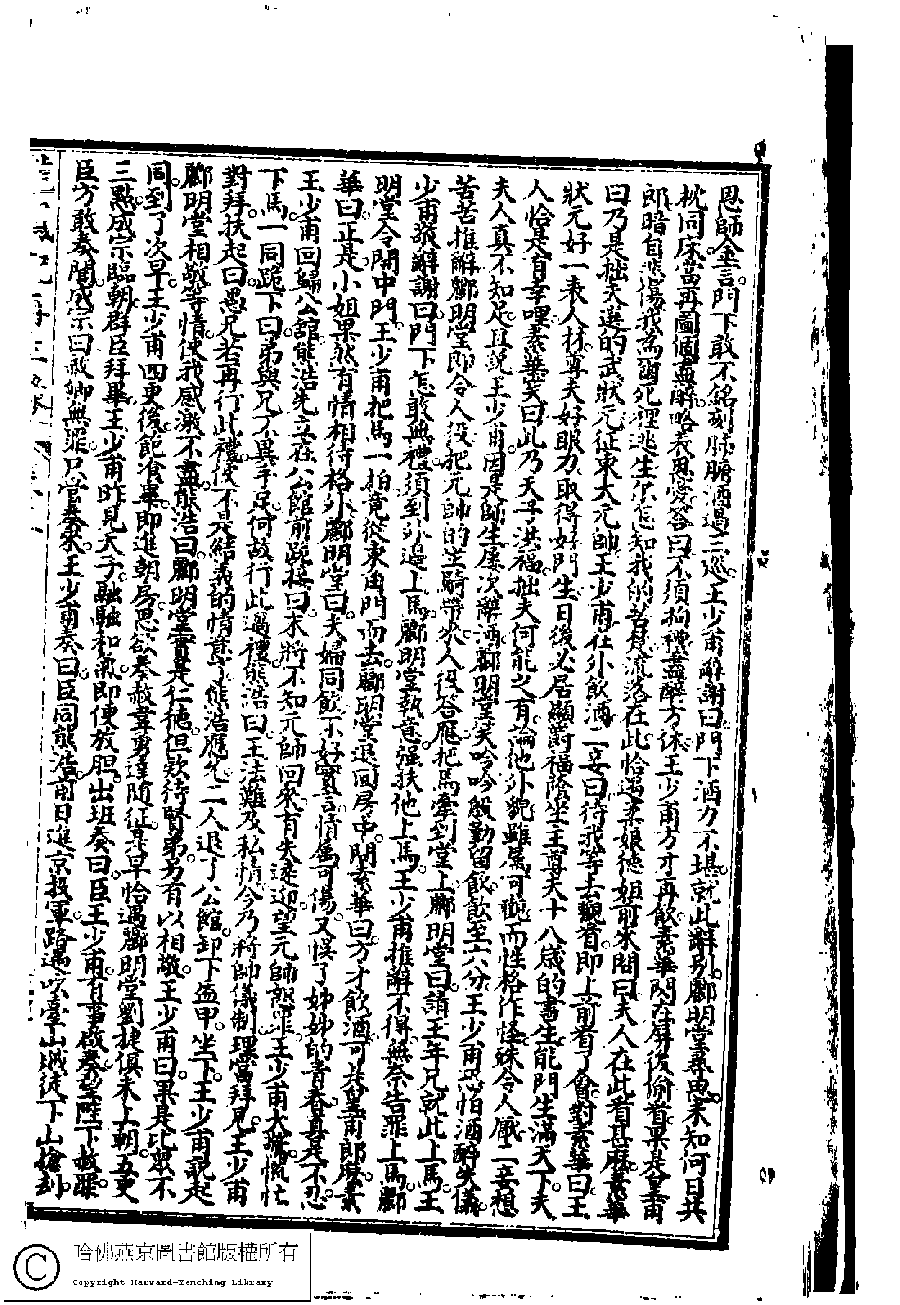 恩師金言門下敢不銘刻肺腑酒過三巡王少甫辭謝曰門下酒力不堪就此辭別酈明堂尋思未知何日共
枕同床當再圖個盡醉略表恩愛答曰不須拘禮盡醉方休王少甫方才再飲素華閃在屏後偷看果是皇甫
郎暗自悲傷我為爾死裡逃生你怎知我的苦楚流落在此恰遇柔娘德姐前來問曰夫人在此看甚麼素華
曰乃是拙夫選的武狀元征東大元帥王少甫在外飲酒二妾曰待我等去觀看即上前看了會對素華曰王
狀元好一表人材尊夫好眼力取得好門生日後必居顯爵福隆坐王尊夫十八歲的書生能門生滿天下夫
人恰是有幸哩素華笑曰此乃天子洪福拙夫何能之有論他外貌雖屬可觀而性格作怪殊令人厭二妾想
夫人真不知足且說王少甫因是師生屢次辭酒酈明堂笑吟吟殷勤留飲飲至六分王少甫恐怕酒醉失儀
苦苦推辭酈明堂即令人役把元帥的坐騎帶來人役答應把馬牽到堂上酈明堂曰請王年兄就此上馬王
少甫敬辭謝曰門下怎敢無禮須到外邊上馬酈明堂執意强扶他上馬王少甫推辭不得無奈告罪上馬酈
明堂令開中門王少甫把馬一拍竟從東角門而去酈明堂退回房中問素華曰方才飲酒可共皇甫郎麼素
華曰正是小姐果然有情相待格外酈明堂曰夫婦同飲不好實言情屬可傷又悞了姊姊的青春真是不忍
王少甫回歸公舘熊浩先立在公館前跪接曰末將不知元帥回來有失遠迎望元帥恕罪王少甫大驚慌忙
下馬一同跪下曰弟與兄不異手足何故行此過禮熊浩曰王法難及私情今乃將帥儀制理當拜見王少甫
對拜扶起曰愚兄若再行此禮後不是結義的情意了熊浩應允二人退了公館卸下盔甲坐下王少甫說起
酈明堂相敬等情使我感激不盡熊浩曰酈明堂實是仁德但欵待賢弟另有以相敬王少甫曰果是比眾不
同到了次早王少甫四更後飽飡畢即進朝房思欲奏赦韋勇達隨征寻早恰遇酈明堂劉捷俱來上朝五更
三點成宗臨朝群臣拜畢王少甫昨見天子融融和氣即便放胆出班奏曰臣王少甫有事啟奏望陛下赦罪
臣方敢奏聞成宗曰赦卿無罪只管奏來王少甫奏曰臣同熊浩前日進京投軍路過吹臺山嘍徒下山搶刦
哈佛燕京圖書館版權所有
Copyright Harvard-Yenching Library